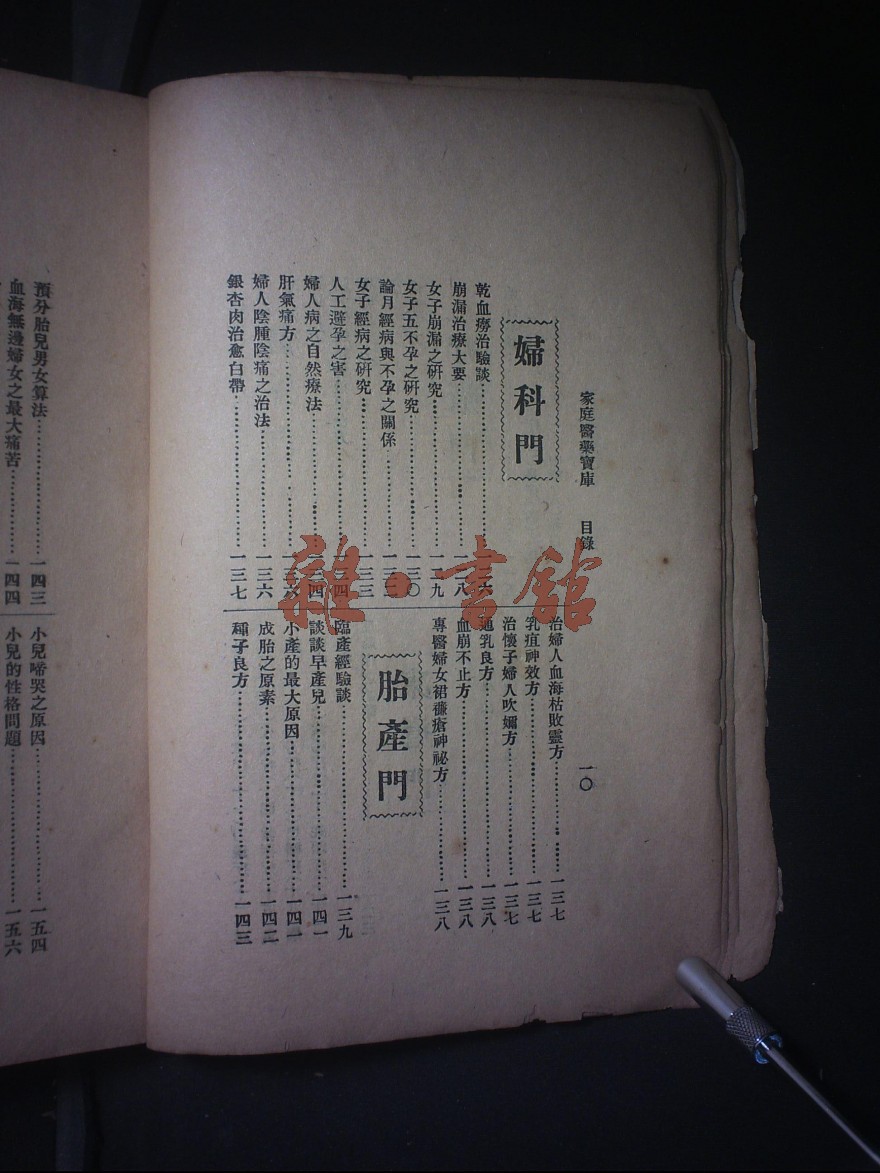 家庭醫藥寶庫 目錄 一〇
婦科門
乾血癆治驗談……六
崩漏治療大要……一二八
女子崩漏之研究……一二九
女子五不孕之研究……一三〇
論月經病與不孕之關係……一三二
女子經病之研究……一三三
人工避孕之害……一三四
婦人病之自然療法……一三四
肝氣痛方……一三六
婦人陰腫陰痛之治法……一三六
銀杏肉治愈白帶……一三七
治婦人血海枯敗靈方……一三七
乳疽神效方……一三七
治懷子婦人吹嬭方……一三七
通乳良方……一三八
血崩不止方……一三八
專醫婦女裙臁瘡神祕方……一三八
胎產門
臨產經驗談……一三九
談談早產兒……一四一
小產的最大原因……一四一
成胎之原素……一四二
種子良方……一四三
預分胎兒男女算法……一四三
血海無邊婦女之最大痛苦……一四四
小兒啼哭之原因……一五四
小兒的性格問題……一五六
雜·書館